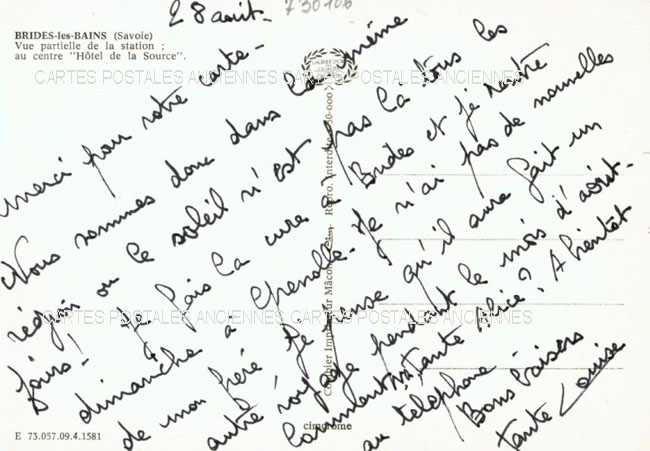 28 août-
730106
BRIDES-les-BAINS (Savoie)
Vue partielle de la station ;
au centre "Hôtel de la Source".
CARTES POSTALES ANCIENNES CARTES POSTALES ANCIENNES
Merci pour votre carte-
Nous sommes donc dans la même
région où le soleil n'est pas là tous les
jours! Je fais la cure à Brides et je rentre
dimanche à Grenoble. Je n'ai pas de nouvelles
de mon frère. Je pense qu'il aura fait un
autre voyage pendant le mois d'août-
Comment tante Alice? A bientôt
au téléphone-
Bons baisers
tante Louise
CARTES POSTALES ANCIENNES CARTES POSTALES ANCIENNES
Combier Imprimeur Mâcon
Repro. Interdite
cim
E 73.057.09.4.1581